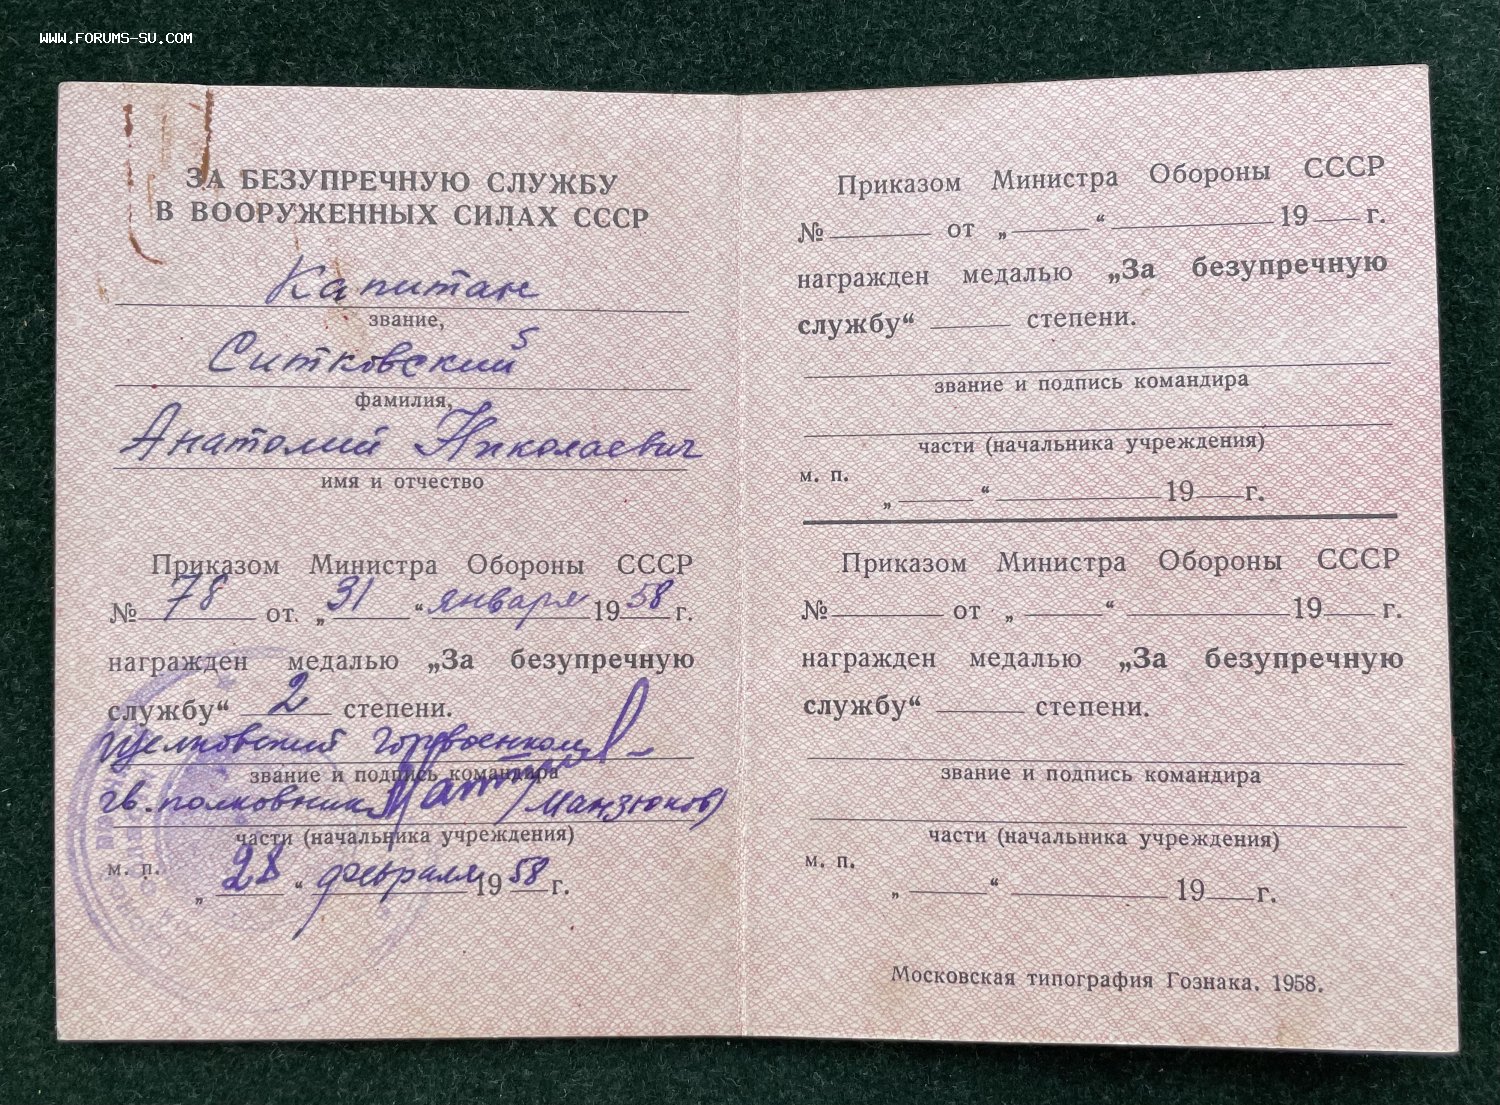 WWW.FORUMS-SU.COM
ЗА БЕЗУПРЕЧНУЮ СЛУЖБУ
В ВООРУЖЕННЫХ СИЛАХ СССР
Капитан
звание,
Ситковский
фамилия,
Анатолий Николаевич
имя и отчество
Приказом Министра Обороны СССР
№ 78 от „ 31 “ января 19 58 г.
награжден медалью „За безупречную
службу“ 2 степени.
Щелковский горвоенком
звание и подпись командира
гв. полковник (Манзюков)
части (начальника учреждения)
м. п.
„ 28 “ февраля 19 58 г.
Приказом Министра Обороны СССР
№ от „ “ 19 г.
награжден медалью „За безупречную
службу“ степени.
звание и подпись командира
части (начальника учреждения)
м. п.
„ “ 19 г.
Приказом Министра Обороны СССР
№ от „ “ 19 г.
награжден медалью „За безупречную
службу“ степени.
звание и подпись командира
части (начальника учреждения)
м. п.
„ “ 19 г.
Московская типография Гознака. 1958.